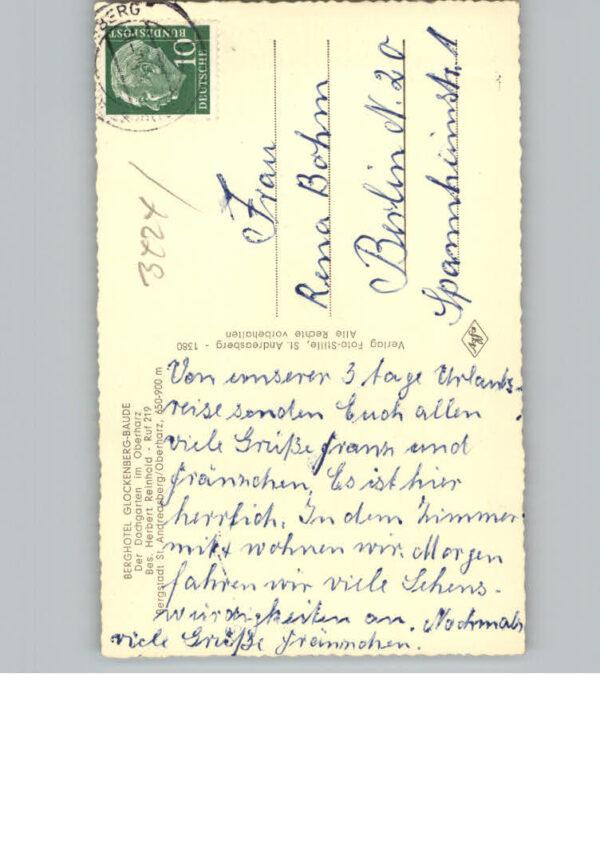 BERG
DEUTSCHE
BUNDESPOST
10
3424/
Frau
Rena Bohm
Berlin N. 20
Spannheimstr. 1
Verlag Foto-Stille, St. Andreasberg - 1380
Alle Rechte vorbehalten
BERGHOTEL GLOCKENBERG-BAUDE
Der Dachgarten im Oberharz
Bes. Herbert Reinhold - Ruf 219
Bergstadt St. Andreasberg/Oberharz, 650-900 m
Von unserer 3 tage Urlaubs-
reise senden Euch allen
viele Grüße Franz und
Fränzchen. Es ist hier
herrlich. In dem Zimmer
mit x wohnen wir. Morgen
fahren wir viele Sehens-
würdigkeiten an. Nochmals
viele Grüße Fränzchen.